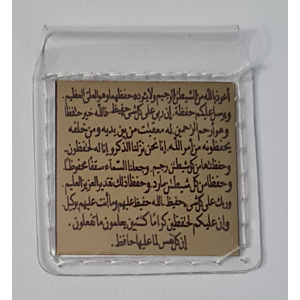 أعوذ بالله من الشيطان الرجيم ولا يئوده حفظهما وهو العلي العظيم
ويرسل عليكم حفظة. إن ربي على كل شيء حفيظ. فالله خير حافظا
وهو أرحم الراحمين. له معقبات من بين يديه ومن خلفه
يحفظونه من أمر الله. إنا نحن نزلنا الذكر وإنا له لحافظون.
وحفظناها من كل شيطان رجيم. وجعلنا السماء سقفا محفوظا
وحفظا من كل شيطان مارد. وحفظا ذلك تقدير العزيز العليم
وربك على كل شيء حفيظ. الله حفيظ عليهم وما أنت عليهم بوكيل
وإن عليكم لحافظين كراما كاتبين يعلمون ما تفعلون.
إن كل نفس لما عليها حافظ.